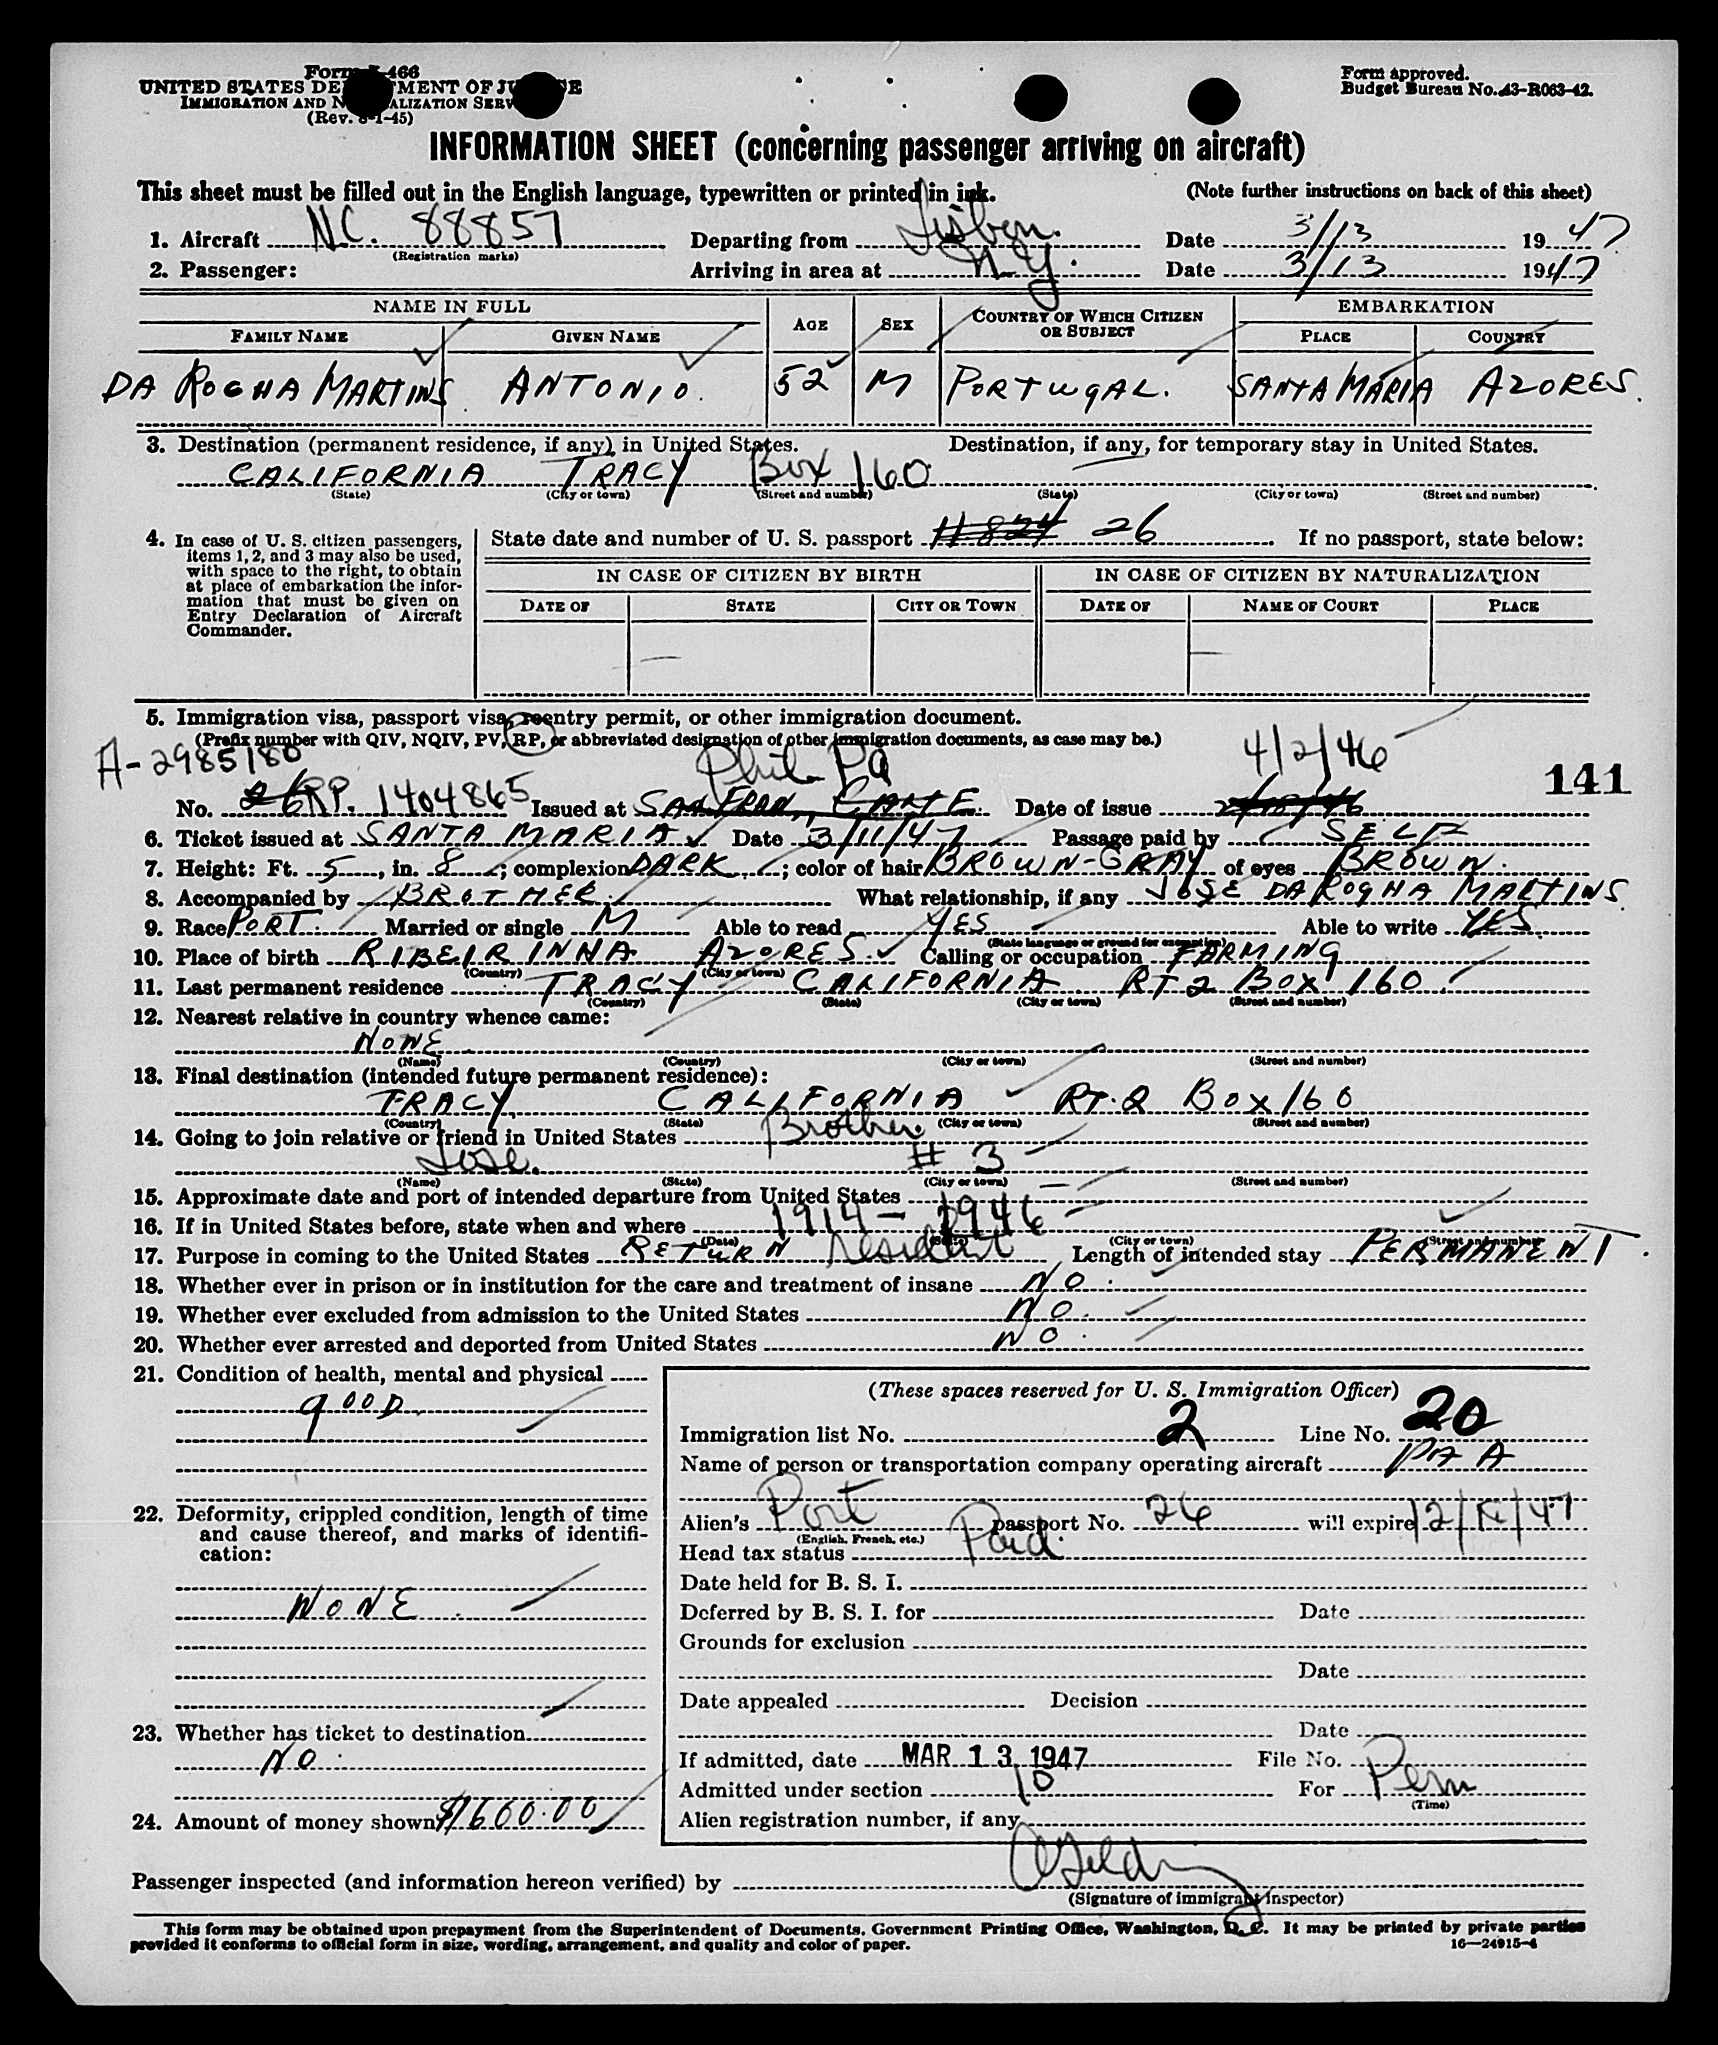 Form I-466
UNITED STATES DEPARTMENT OF JUSTICE
IMMIGRATION AND NATURALIZATION SERVICE
(Rev. 8-1-45)
Form approved.
Budget Bureau No. 43-R063-42.
INFORMATION SHEET (concerning passenger arriving on aircraft)
This sheet must be filled out in the English language, typewritten or printed in ink. (Note further instructions on back of this sheet)
1. Aircraft N.C. 88857 Departing from Lisbon. Date 3/13 1947
(Registration marks)
2. Passenger: Arriving in area at N.Y. Date 3/13 1947
NAME IN FULL AGE SEX COUNTRY OF WHICH CITIZEN OR SUBJECT EMBARKATION
FAMILY NAME GIVEN NAME PLACE COUNTRY
DA ROGHA MARTINS ANTONIO. 52 M PORTUGAL. SANTA MARIA AZORES.
3. Destination (permanent residence, if any) in United States. Destination, if any, for temporary stay in United States.
CALIFORNIA TRACY Box 160
(State) (City or town) (Street and number) (State) (City or town) (Street and number)
4. In case of U. S. citizen passengers, items 1, 2, and 3 may also be used, with space to the right, to obtain at place of embarkation the information that must be given on Entry Declaration of Aircraft Commander.
State date and number of U. S. passport 11824 26 If no passport, state below:
IN CASE OF CITIZEN BY BIRTH IN CASE OF CITIZEN BY NATURALIZATION
DATE OF STATE CITY OR TOWN DATE OF NAME OF COURT PLACE
5. Immigration visa, passport visa, reentry permit, or other immigration document.
(Prefix number with QIV, NQIV, PV, RP, or abbreviated designation of other immigration documents, as case may be.)
A-2985180 Phil. Pa 4/2/46
141
No. RP. 1404865 Issued at SAN FRAN, Date of issue
6. Ticket issued at SANTA MARIA Date 3/11/47 Passage paid by SELF
7. Height: Ft. 5, in. 8; complexion DARK.; color of hair BROWN-GRAY of eyes BROWN.
8. Accompanied by BROTHER. What relationship, if any JOSE DA ROGHA MARTINS
9. Race PORT. Married or single M Able to read YES Able to write YES.
(State language or ground for exemption)
10. Place of birth RIBEIRINNA AZORES. Calling or occupation FARMING
(Country) (City or town)
11. Last permanent residence TRACY CALIFORNIA RT 2 BOX 160.
(Country) (State) (City or town) (Street and number)
12. Nearest relative in country whence came:
NONE
(Name) (Country) (City or town) (Street and number)
13. Final destination (intended future permanent residence):
TRACY CALIFORNIA RT. 2 BOX 160
(Country) (State) (City or town) (Street and number)
14. Going to join relative or friend in United States Brother.
Jose. # 3
(Name) (State) (City or town) (Street and number)
15. Approximate date and port of intended departure from United States
16. If in United States before, state when and where 1914 - 1946
(Date) (State) (City or town) (Street and number)
17. Purpose in coming to the United States RETURN resident Length of intended stay PERMANENT.
18. Whether ever in prison or in institution for the care and treatment of insane NO.
19. Whether ever excluded from admission to the United States NO.
20. Whether ever arrested and deported from United States NO.
21. Condition of health, mental and physical
gOOD.
22. Deformity, crippled condition, length of time and cause thereof, and marks of identification:
NONE.
23. Whether has ticket to destination
NO.
24. Amount of money shown $1600.00
(These spaces reserved for U. S. Immigration Officer)
Immigration list No. 2 Line No. 20
Name of person or transportation company operating aircraft PAA
Alien's Port passport No. 26 will expire
(English, French, etc.)
Head tax status Paid.
Date held for B. S. I.
Deferred by B. S. I. for Date
Grounds for exclusion
Date
Date appealed Decision
Date
If admitted, date MAR 13 1947 File No.
Admitted under section 10 For Perm
(Time)
Alien registration number, if any
Passenger inspected (and information hereon verified) by
(Signature of immigrant inspector)
This form may be obtained upon prepayment from the Superintendent of Documents, Government Printing Office, Washington, D. C. It may be printed by private parties
provided it conforms to official form in size, wording, arrangement, and quality and color of paper.
16—24915-4